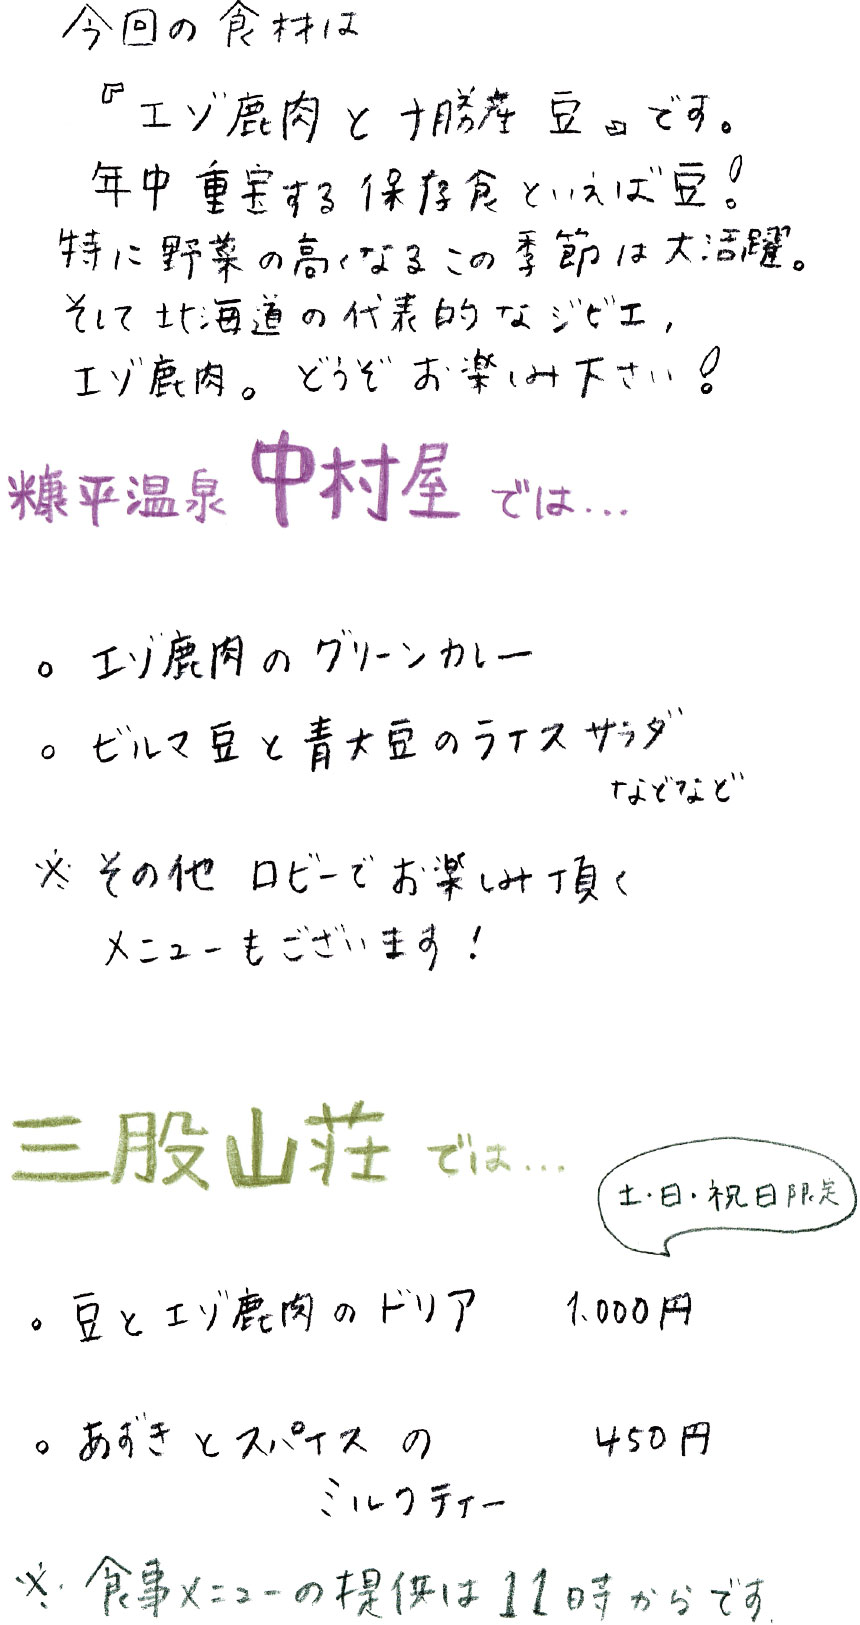 今回の食材は
『エゾ鹿肉と十勝産 豆』です。
年中 重宝する保存食といえば豆!
特に野菜の高くなるこの季節は大活躍。
そして北海道の代表的なジビエ,
エゾ鹿肉。どうぞお楽しみ下さい!
糠平温泉 中村屋 では…
○ エゾ鹿肉のグリーンカレー
○ ビルマ豆と青大豆のライスサラダ
などなど
※ その他 ロビーでお楽しみ頂く
メニューもございます!
三股山荘 では…
土・日・祝日限定
○ 豆とエゾ鹿肉のドリア 1.000円
○ あずきとスパイスの 450円
ミルクティー
※ 食事メニューの提供は11時からです.